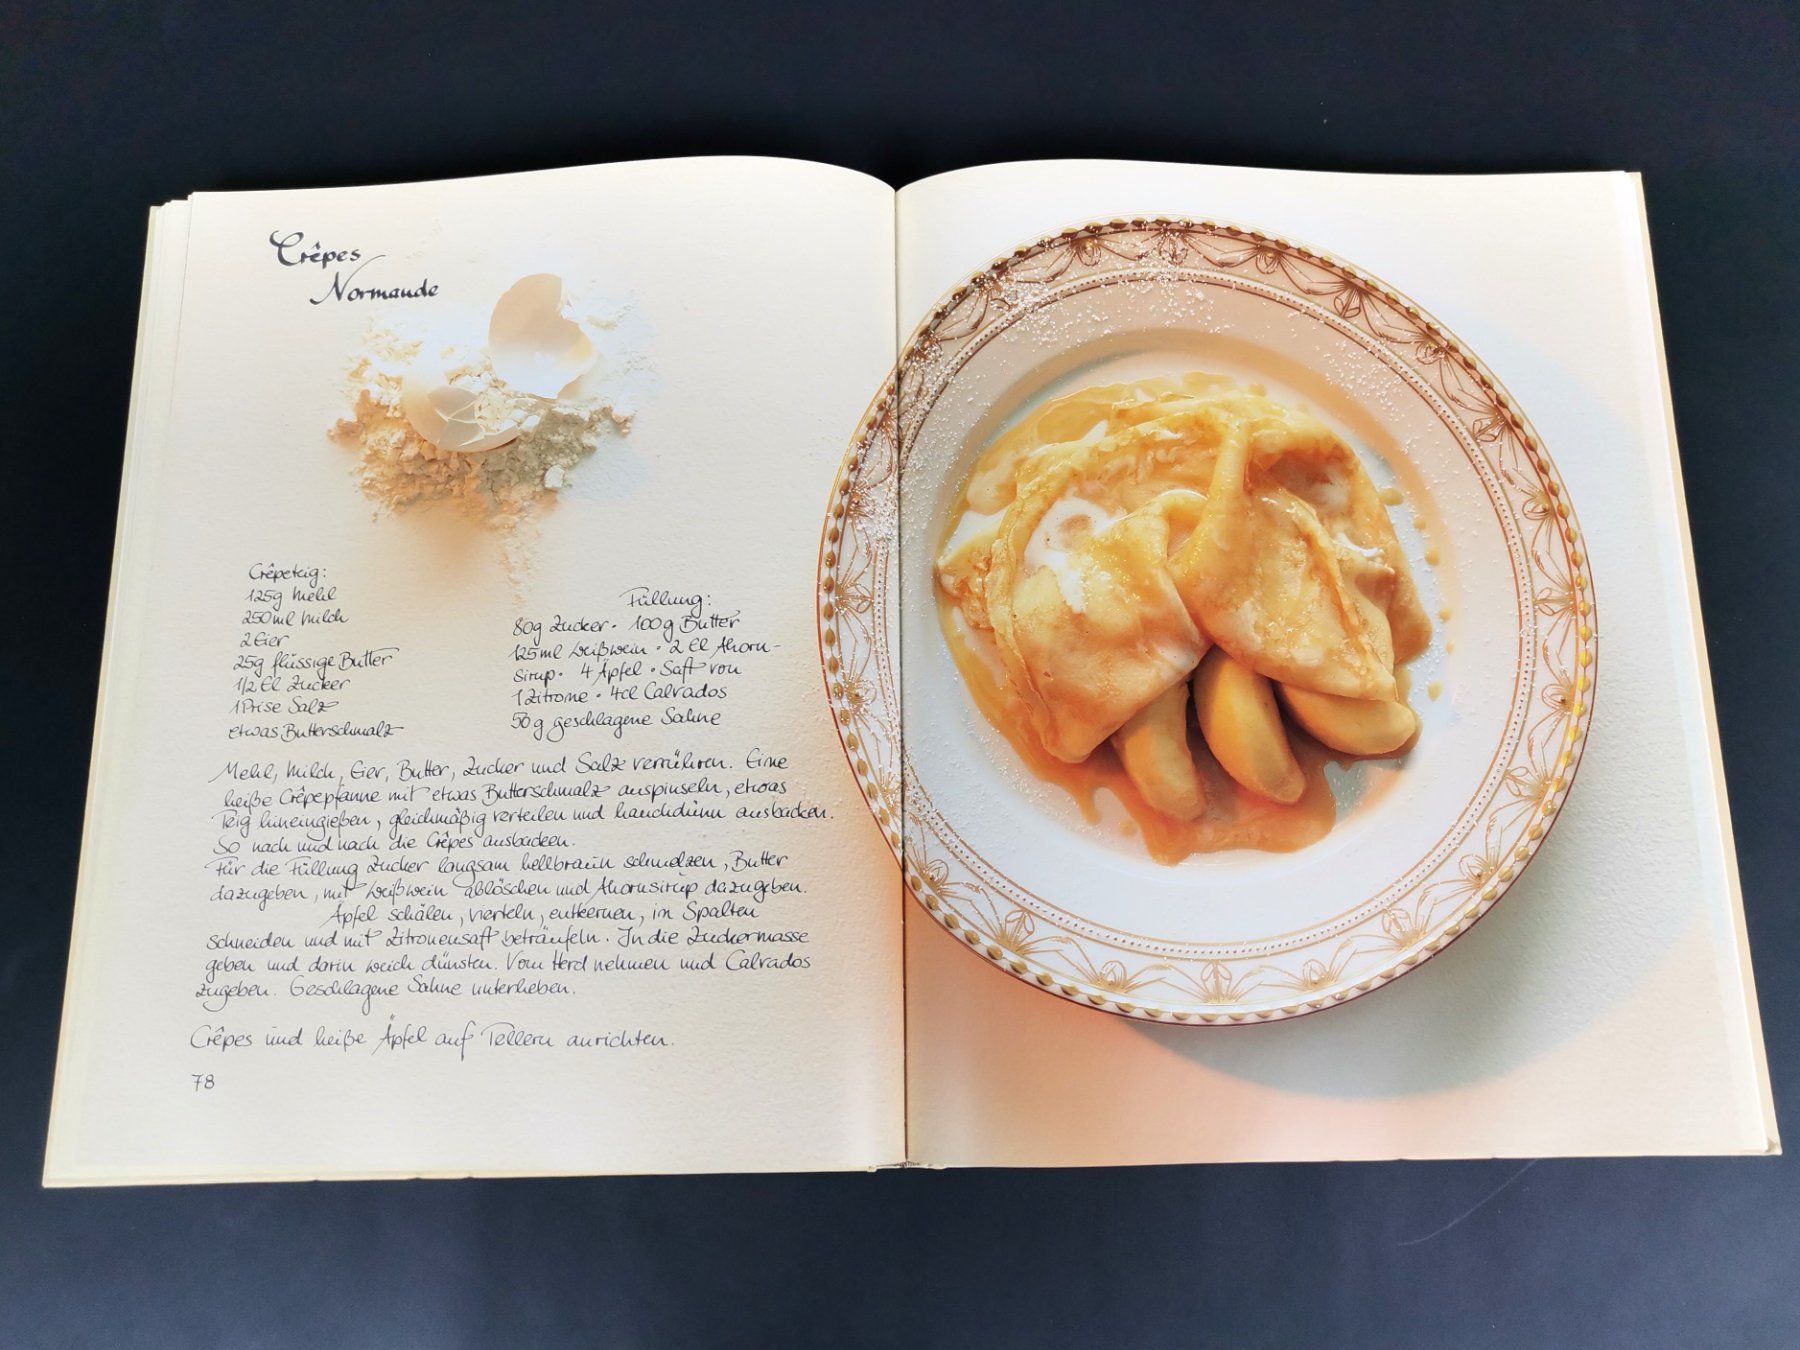 Crêpes
Normande
Crêpeteig:
125g Mehl
250ml Milch
2 Eier
25g flüssige Butter
1/2 El Zucker
1 Prise Salz
etwas Butterschmalz
Füllung:
80g Zucker · 100g Butter
125ml Weißwein · 2 El Ahorn-
sirup · 4 Äpfel · Saft von
1 Zitrone · 4cl Calvados
50g geschlagene Sahne
Mehl, Milch, Eier, Butter, Zucker und Salz verrühren. Eine
heiße Crêpepfanne mit etwas Butterschmalz auspinseln, etwas
Teig hineingießen, gleichmäßig verteilen und hauchdünn ausbacken.
So nach und nach die Crêpes ausbacken.
Für die Füllung Zucker langsam hellbraun schmelzen, Butter
dazugeben, mit Weißwein ablöschen und Ahornsirup dazugeben.
Äpfel schälen, vierteln, entkernen, in Spalten
schneiden und mit Zitronensaft beträufeln. In die Zuckermasse
geben und darin weich dünsten. Vom Herd nehmen und Calvados
zugeben. Geschlagene Sahne unterheben.
Crêpes und heiße Äpfel auf Tellern anrichten.
78